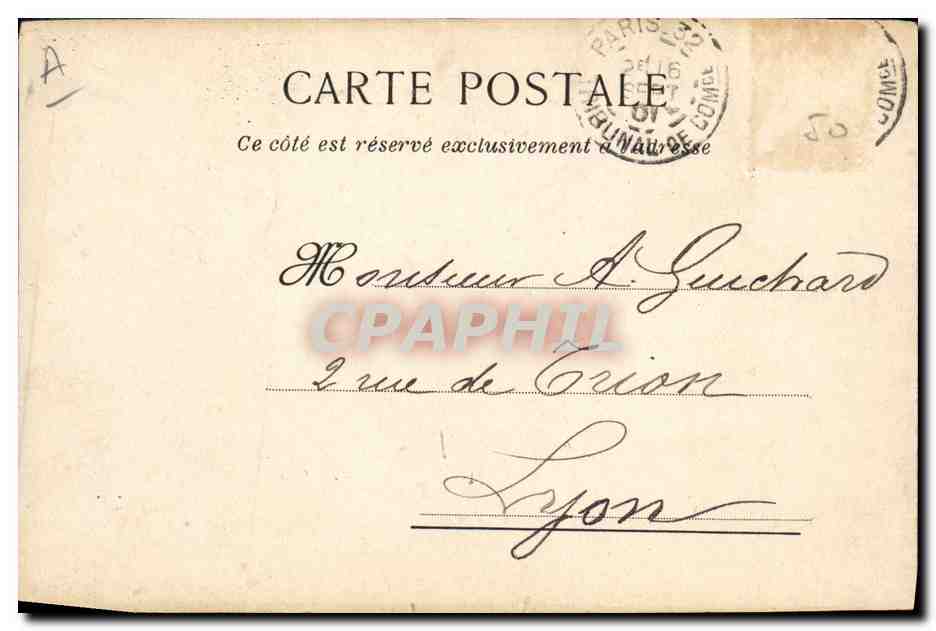 A
CARTE POSTALE
Ce côté est réservé exclusivement à l'adresse
PARIS 32
16
SEPT
01
TRIBUNAL DE COMCE
COMCE
50
Monsieur A. Guichard
CPAPHIL
2 rue de Trion
Lyon